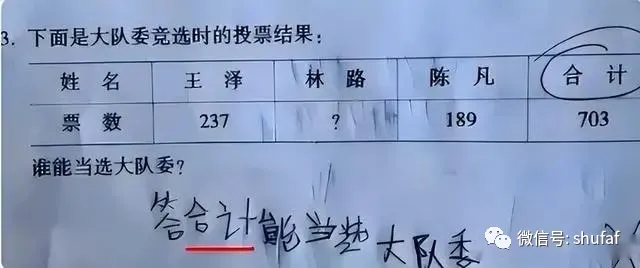 3. 下面是大队委竞选时的投票结果：
姓 名 王 泽 林 路 陈 凡 合 计
票 数 237 ? 189 703
谁能当选大队委？
答合计能当选大队委
微信号: shufaf